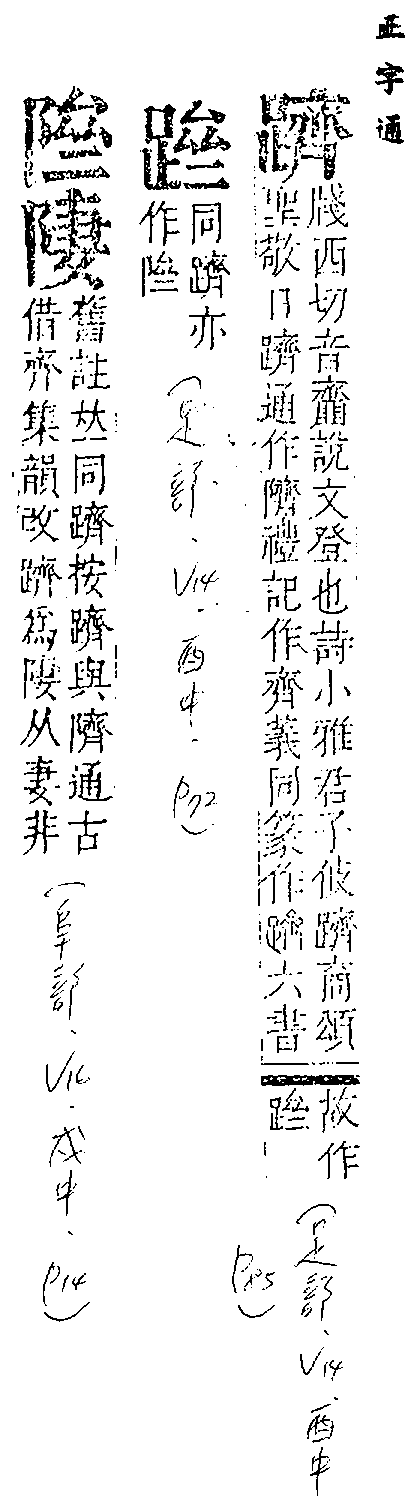 正字通
躋
牋西切音齎說文登也詩小雅君子攸躋商頌
聖敬日躋通作隮禮記作齊義同篆作六書
故作
(足部、V14、酉中
P85)
同躋亦
作
(足部、V14、酉中、P72)
舊註𠀤同躋按躋與隮通古
借齊集韻改躋爲从妻非
(阜部、V16、戌中、P14)